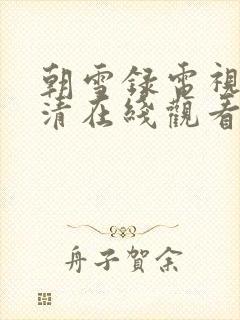 朝雪録電視
清在綫觀看
舟子賀余